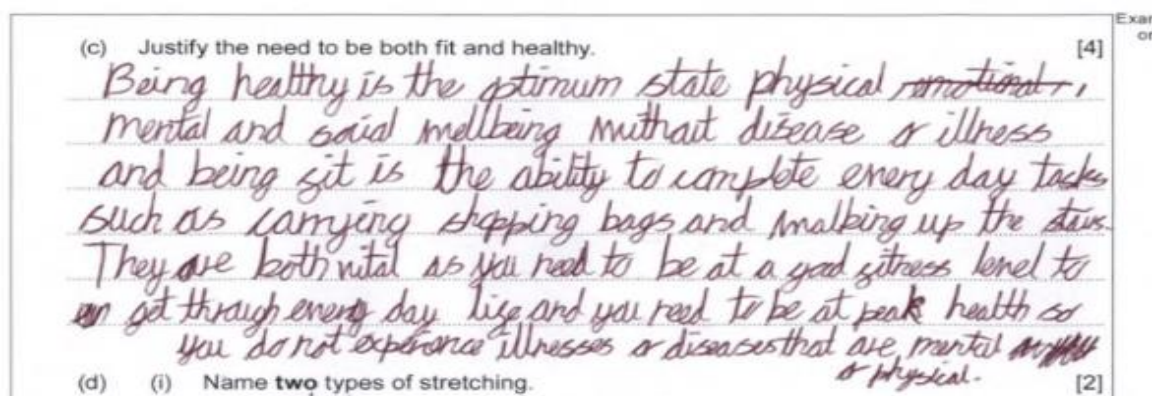 Exar
or
(c) Justify the need to be both fit and healthy. [4]
Being healthy is the optimum state physical emotional,
mental and social wellbeing without disease or illness
and being fit is the ability to complete every day tasks
such as carrying shopping bags and walking up the stairs.
They are both vital as you need to be at a good fitness level to
get through every day life and you need to be at peak health so
you do not experience illnesses or diseases that are mental
or physical.
(d) (i) Name two types of stretching. [2]